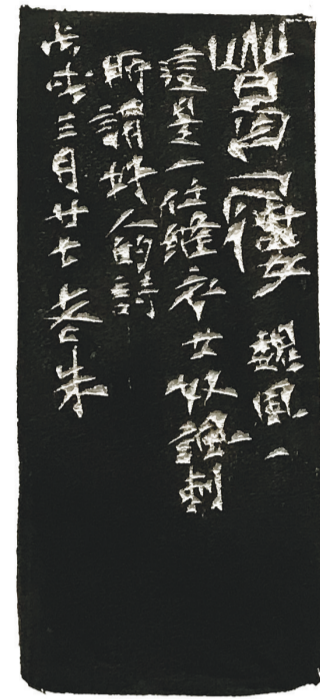 葛屨 魏風一
這是一位縫衣女奴諷刺
所謂好人的詩
三月廿七 老朱